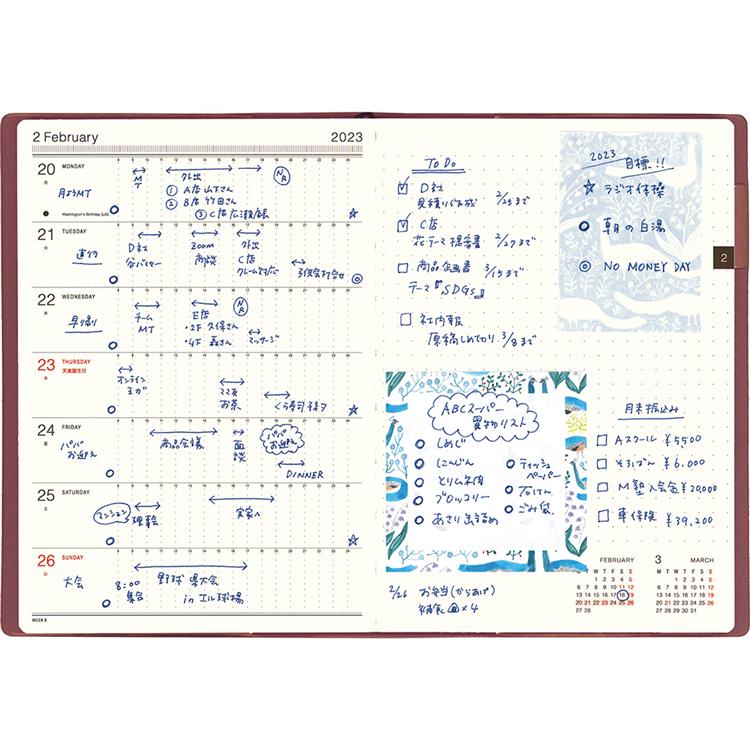 2 February
2023
20 MONDAY
月
Washington's Birthday (US)
月ようMT
MT
外出
① A店 山下さん
② B店 竹田さん
③ C店 広瀬館長
NR
21 TUESDAY
火
直行
D社
谷バイヤー
zoom
商談
外出
C店
クレーム対応
22 WEDNESDAY
水
早め帰り
チーム
MT
E店
・2F 久保さん
・4F 森さん
NR
マッサージ
23 THURSDAY
木 天皇誕生日
オンライン
ヨガ
ママ友
お茶
くら寿司
24 FRIDAY
金
パパ
お迎え
商品会議
面談
パパ
お迎え
DINNER
25 SATURDAY
土
マンション
理事会
実家へ
26 SUNDAY
日
大会
8:00
集合
野球 県大会
in エル球場
WEEK 8
To Do
D社
見積り作成 2/25まで
C店
花テーマ提案書 2/27まで
商品企画書 3/15まで
テーマ『SDGs』
社内報
原稿しめ切り 3/8まで
2023
目標!!
☆ ラジオ体操
○ 朝の白湯
◎ NO MONEY DAY
2
ABCスーパー
買物リスト
○ しめじ
○ にんじん
○ とりムネ肉
○ ブロッコリー
○ あさり缶詰め
○ ティッシュ
ペーパー
○ 石けん
○ ごみ袋
月末振込み
Aスクール ¥5500
そろばん ¥6,000
M塾入会金 ¥20,000
車保険 ¥39,200
2/26 お弁当(からあげ)
補食 ×4
FEBRUARY
M T W T F S S
1 2 3 4 5
6 7 8 9 10 11 12
13 14 15 16 17 18 19
20 21 22 23 24 25 26
27 28
3 MARCH
M T W T F S S
1 2 3 4 5
6 7 8 9 10 11 12
13 14 15 16 17 18 19
20 21 22 23 24 25 26
27 28 29 30 31